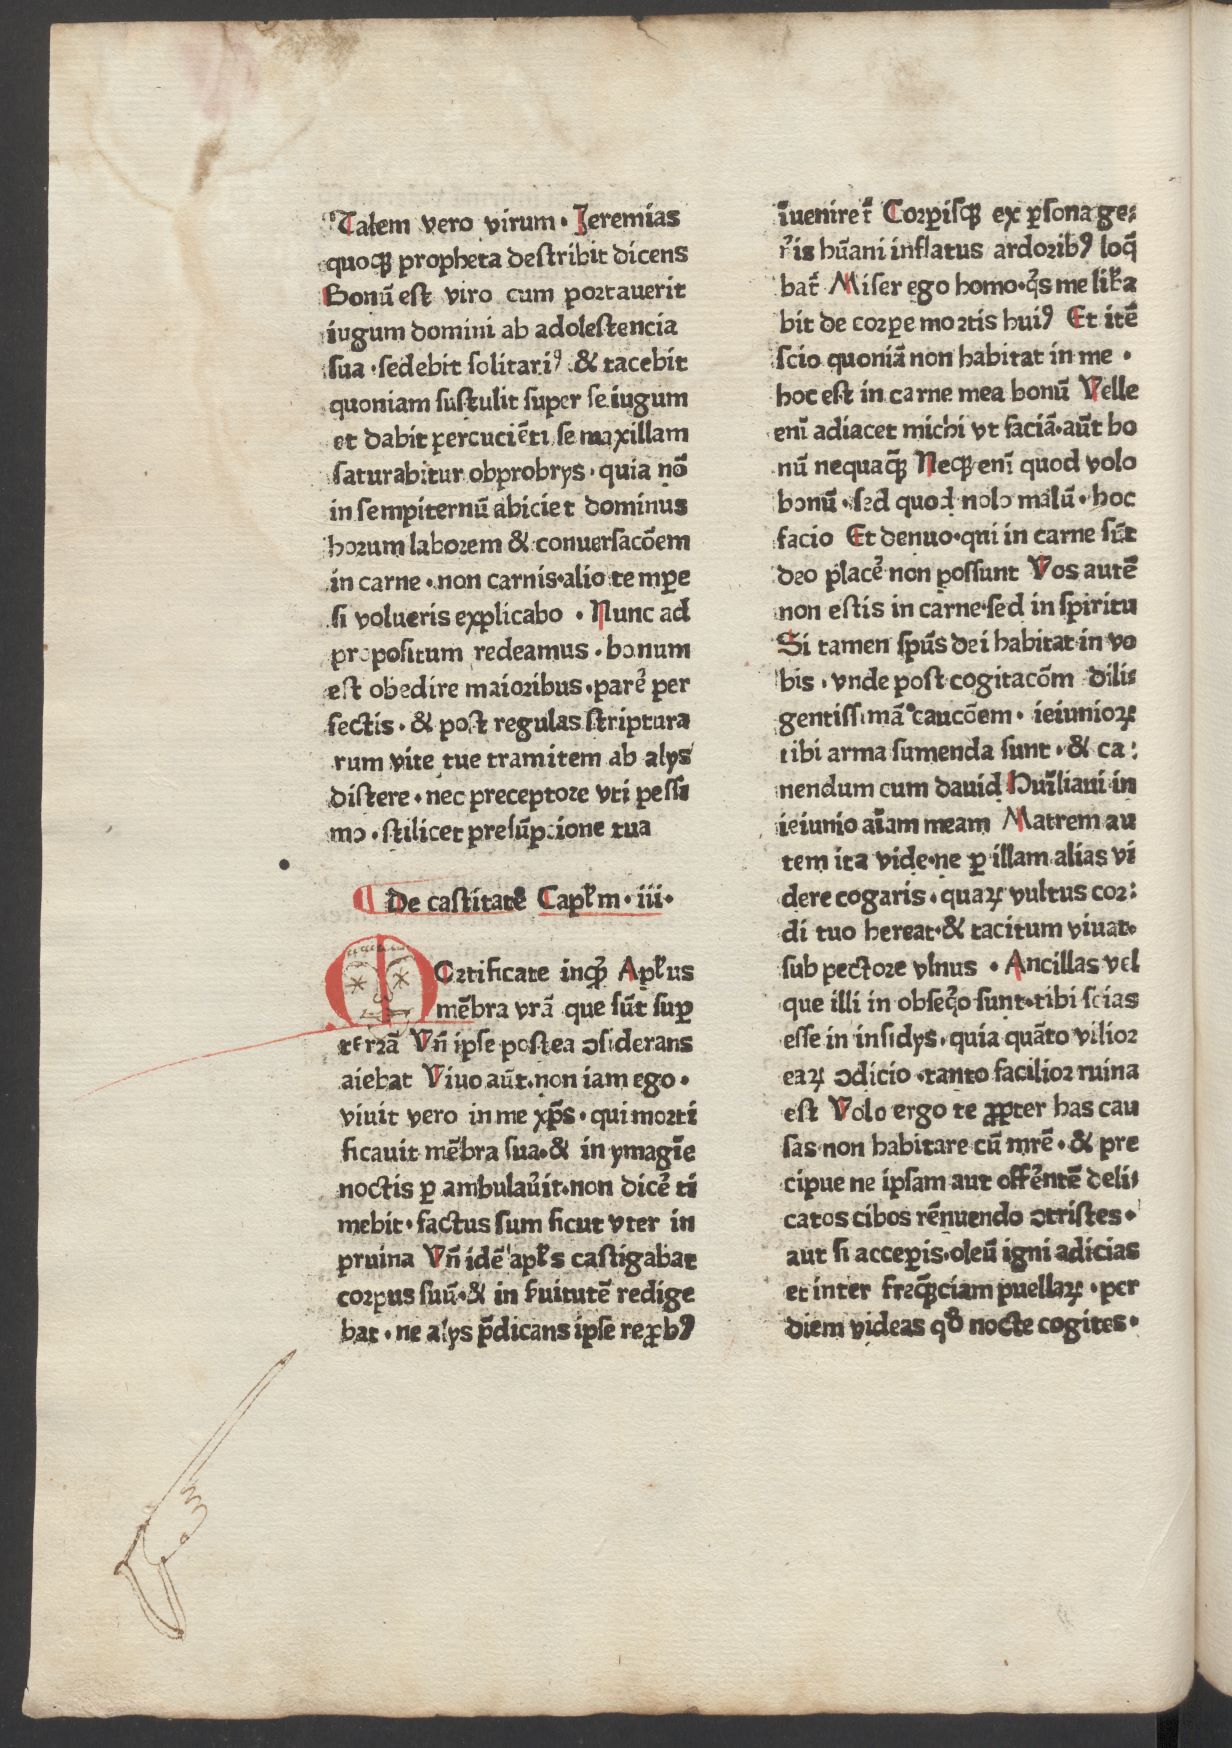 Talem vero virum · Jeremias
quoqꝫ propheta destribit dicens
Bonū est viro cum portauerit
iugum domini ab adolestencia
sua · sedebit solitariꝰ & tacebit
quoniam sustulit super se iugum
et dabit percuciēti se maxillam
saturabitur obprobrys · quia nō
in sempiternū abiciet dominus
horum laborem & conuersacōem
in carne · non carnis · alio tempe
si volueris explicabo · Nunc ad
propositum redeamus · bonum
est obedire maioribus · parē per
fectis · & post regulas striptura
rum vite tue tramitem ab alys
distere · nec preceptore vti pessi
mo · stilicet presūpcione tua
De castitate Capłm · iii ·
MOrtificate inqꝫ Apłus
mēbra vrā que sūt suꝑ
terrā Vn̄ ipse postea ɔsiderans
aiebat Viuo aūt · non iam ego ·
viuit vero in me xp̄s · qui morti
ficauit mēbra sua · & in ymagīe
noctis ꝑ ambulaūit · non dicē ti
mebit · factus sum sicut vter in
pruina Vn̄ idē apłs castigabat
corpus suū · & in ẜuitutē redige
bat · ne alys p̄dicans ipse reꝓbꝰ
īuenireṫ Corꝑisqꝫ ex ꝑsona ge⸗
r̄is hūani inflatus ardoribꝰ loq̄
bat̄ Miser ego homo · q̇s me liƀa
bit de corpe mortis huiꝰ Et itē
scio quoniā non habitat in me ·
hoc est in carne mea bonū Velle
enī adiacet michi vt faciā · aūt bo
nū nequaqꝫ Neqꝫ enī quod volo
bonū · sed quod nolo malū · hoc
facio Et denuo · qui in carne sūt
deo placē non possunt Vos autē
non estis in carne · sed in spiritu
Si tamen spūs dei habitat in vo
bis · vnde post cogitacōm dili⸗
gentissimā caucōem · ieiunioꝝ
tibi arma sumenda sunt · & ca:
nendum cum dauid Huīliaui in
ieiunio aīam meam Matrem au
tem ita vide · ne ꝑ illam alias vi
dere cogaris · quaꝝ vultus cor:
di tuo hereat · & tacitum viuat ·
sub pectore vlnus · Ancillas vel
que illi in obseq̇o sunt · tibi scias
esse in insidys · quia quāto vilior
eaꝝ ɔdicio · tanto facilior ruina
est Volo ergo te ꝓpter has cau
sas non habitare cū mrē · & pre
cipue ne ipsam aut offēntē deli⸗
catos cibos rēnuendo ɔtristes ·
aut si acceꝑis · oleū igni adicias
et inter freq̄ꝫciam puellaꝝ · per
diem videas qđ nocte cogites ·